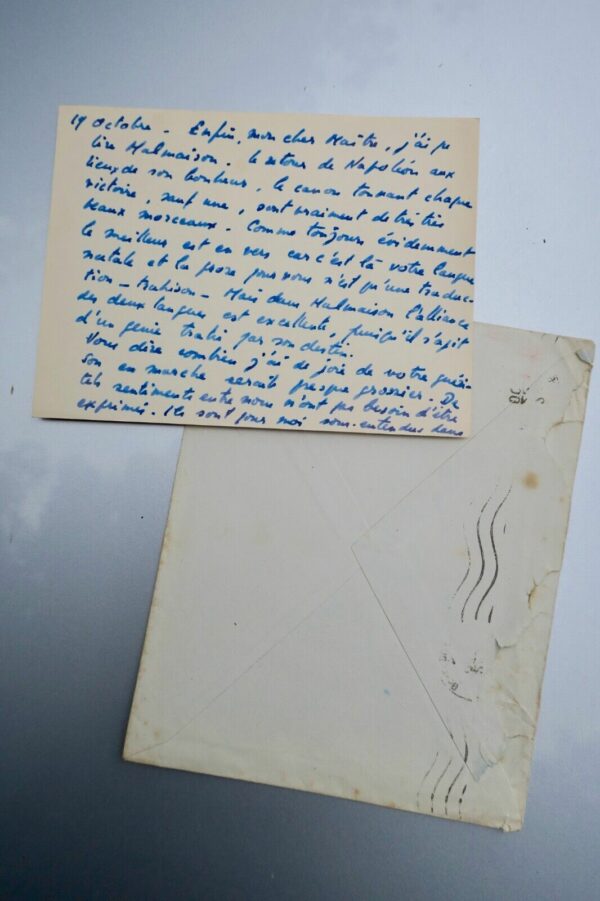 19 Octobre. Enfin, mon cher Maître, j'ai pu
lire Malmaison. Le retour de Napoléon aux
lieux de son bonheur, le canon tonnant chaque
victoire, sauf une, sont vraiment de très très
beaux morceaux. Comme toujours évidemment
le meilleur est en vers car c'est là votre langue
natale et la prose pour vous n'est qu'une traduc-
tion - trahison - Mais dans Malmaison l'alliance
des deux langues est excellente, puisqu'il s'agit
d'un génie trahi par son destin.
Vous dire combien j'ai de joie de votre guéri-
son en marche serait presque grossier. De
tels sentiments entre nous n'ont pas besoin d'être
exprimés. Ils sont pour moi sous-entendus dans